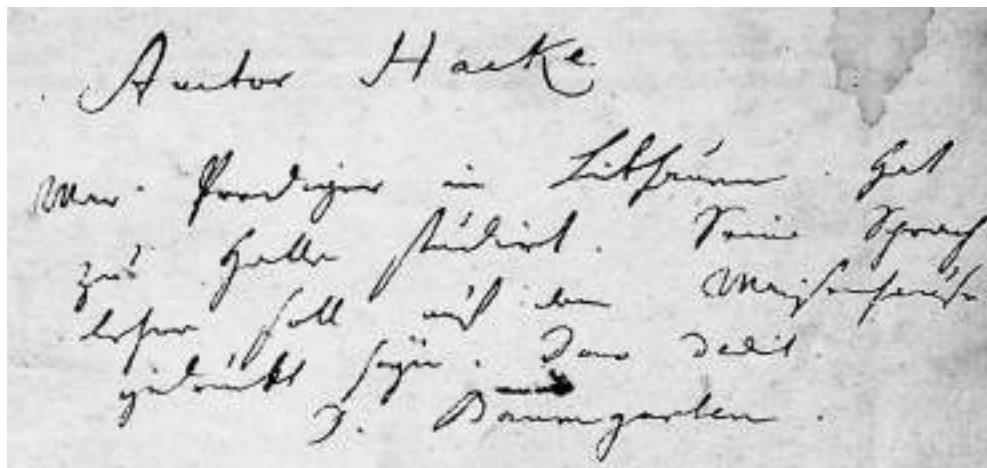 Autor Haeke
War Prediger in Litthauen. Hat
zu Halle studirt. Seine Sprach
lehre soll auf dem Waysenhause
gedruckt seyn. Dono dedit
J. Baumgarten.